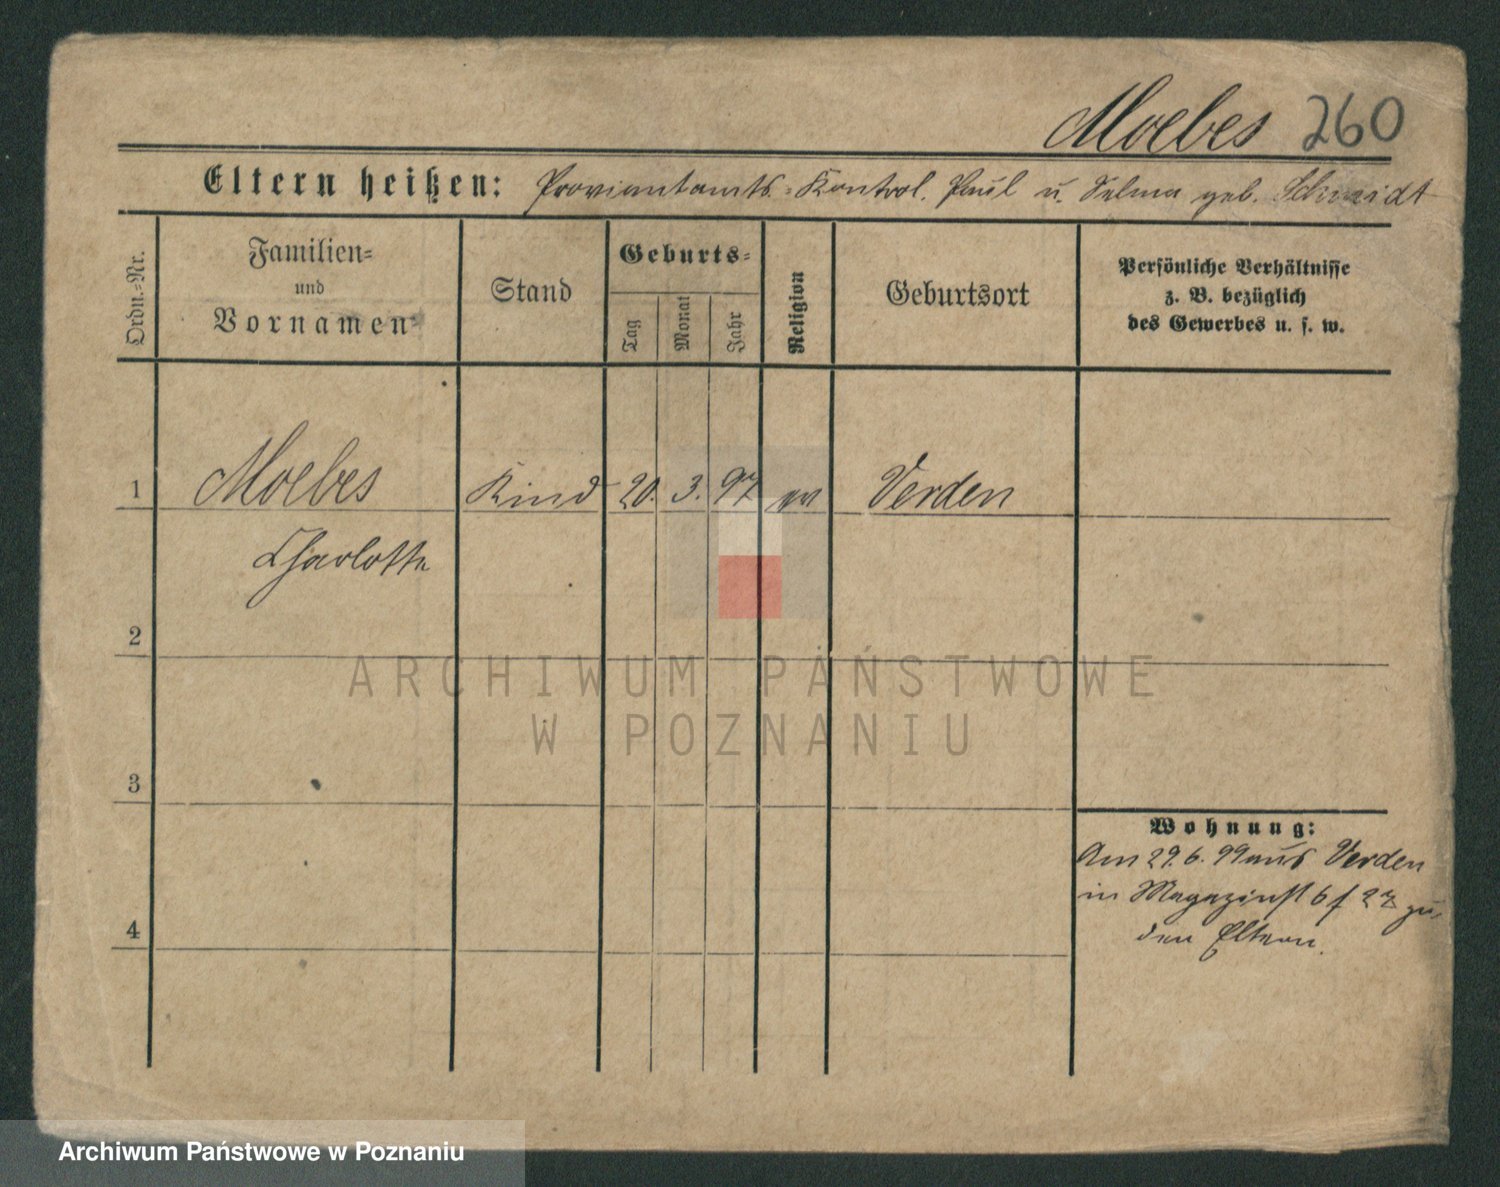 Moebes 260
Eltern heißen: Proviantamts-Kontrol. Paul u. Selma geb. Schmidt
Ordn.-Nr.
Familien-
und
Vornamen
Stand
Geburts-
Tag
Monat
Jahr
Religion
Geburtsort
Persönliche Verhältnisse
z. B. bezüglich
des Gewerbes u. s. w.
1 Moebes Kind 20. 3. 97 Verden
Charlotte
2
3
4
Wohnung:
Am 29.6.99 aus Verden
in Magazinst 6 f zu
den Eltern.
ARCHIWUM PAŃSTWOWE
W POZNANIU
Archiwum Państwowe w Poznaniu